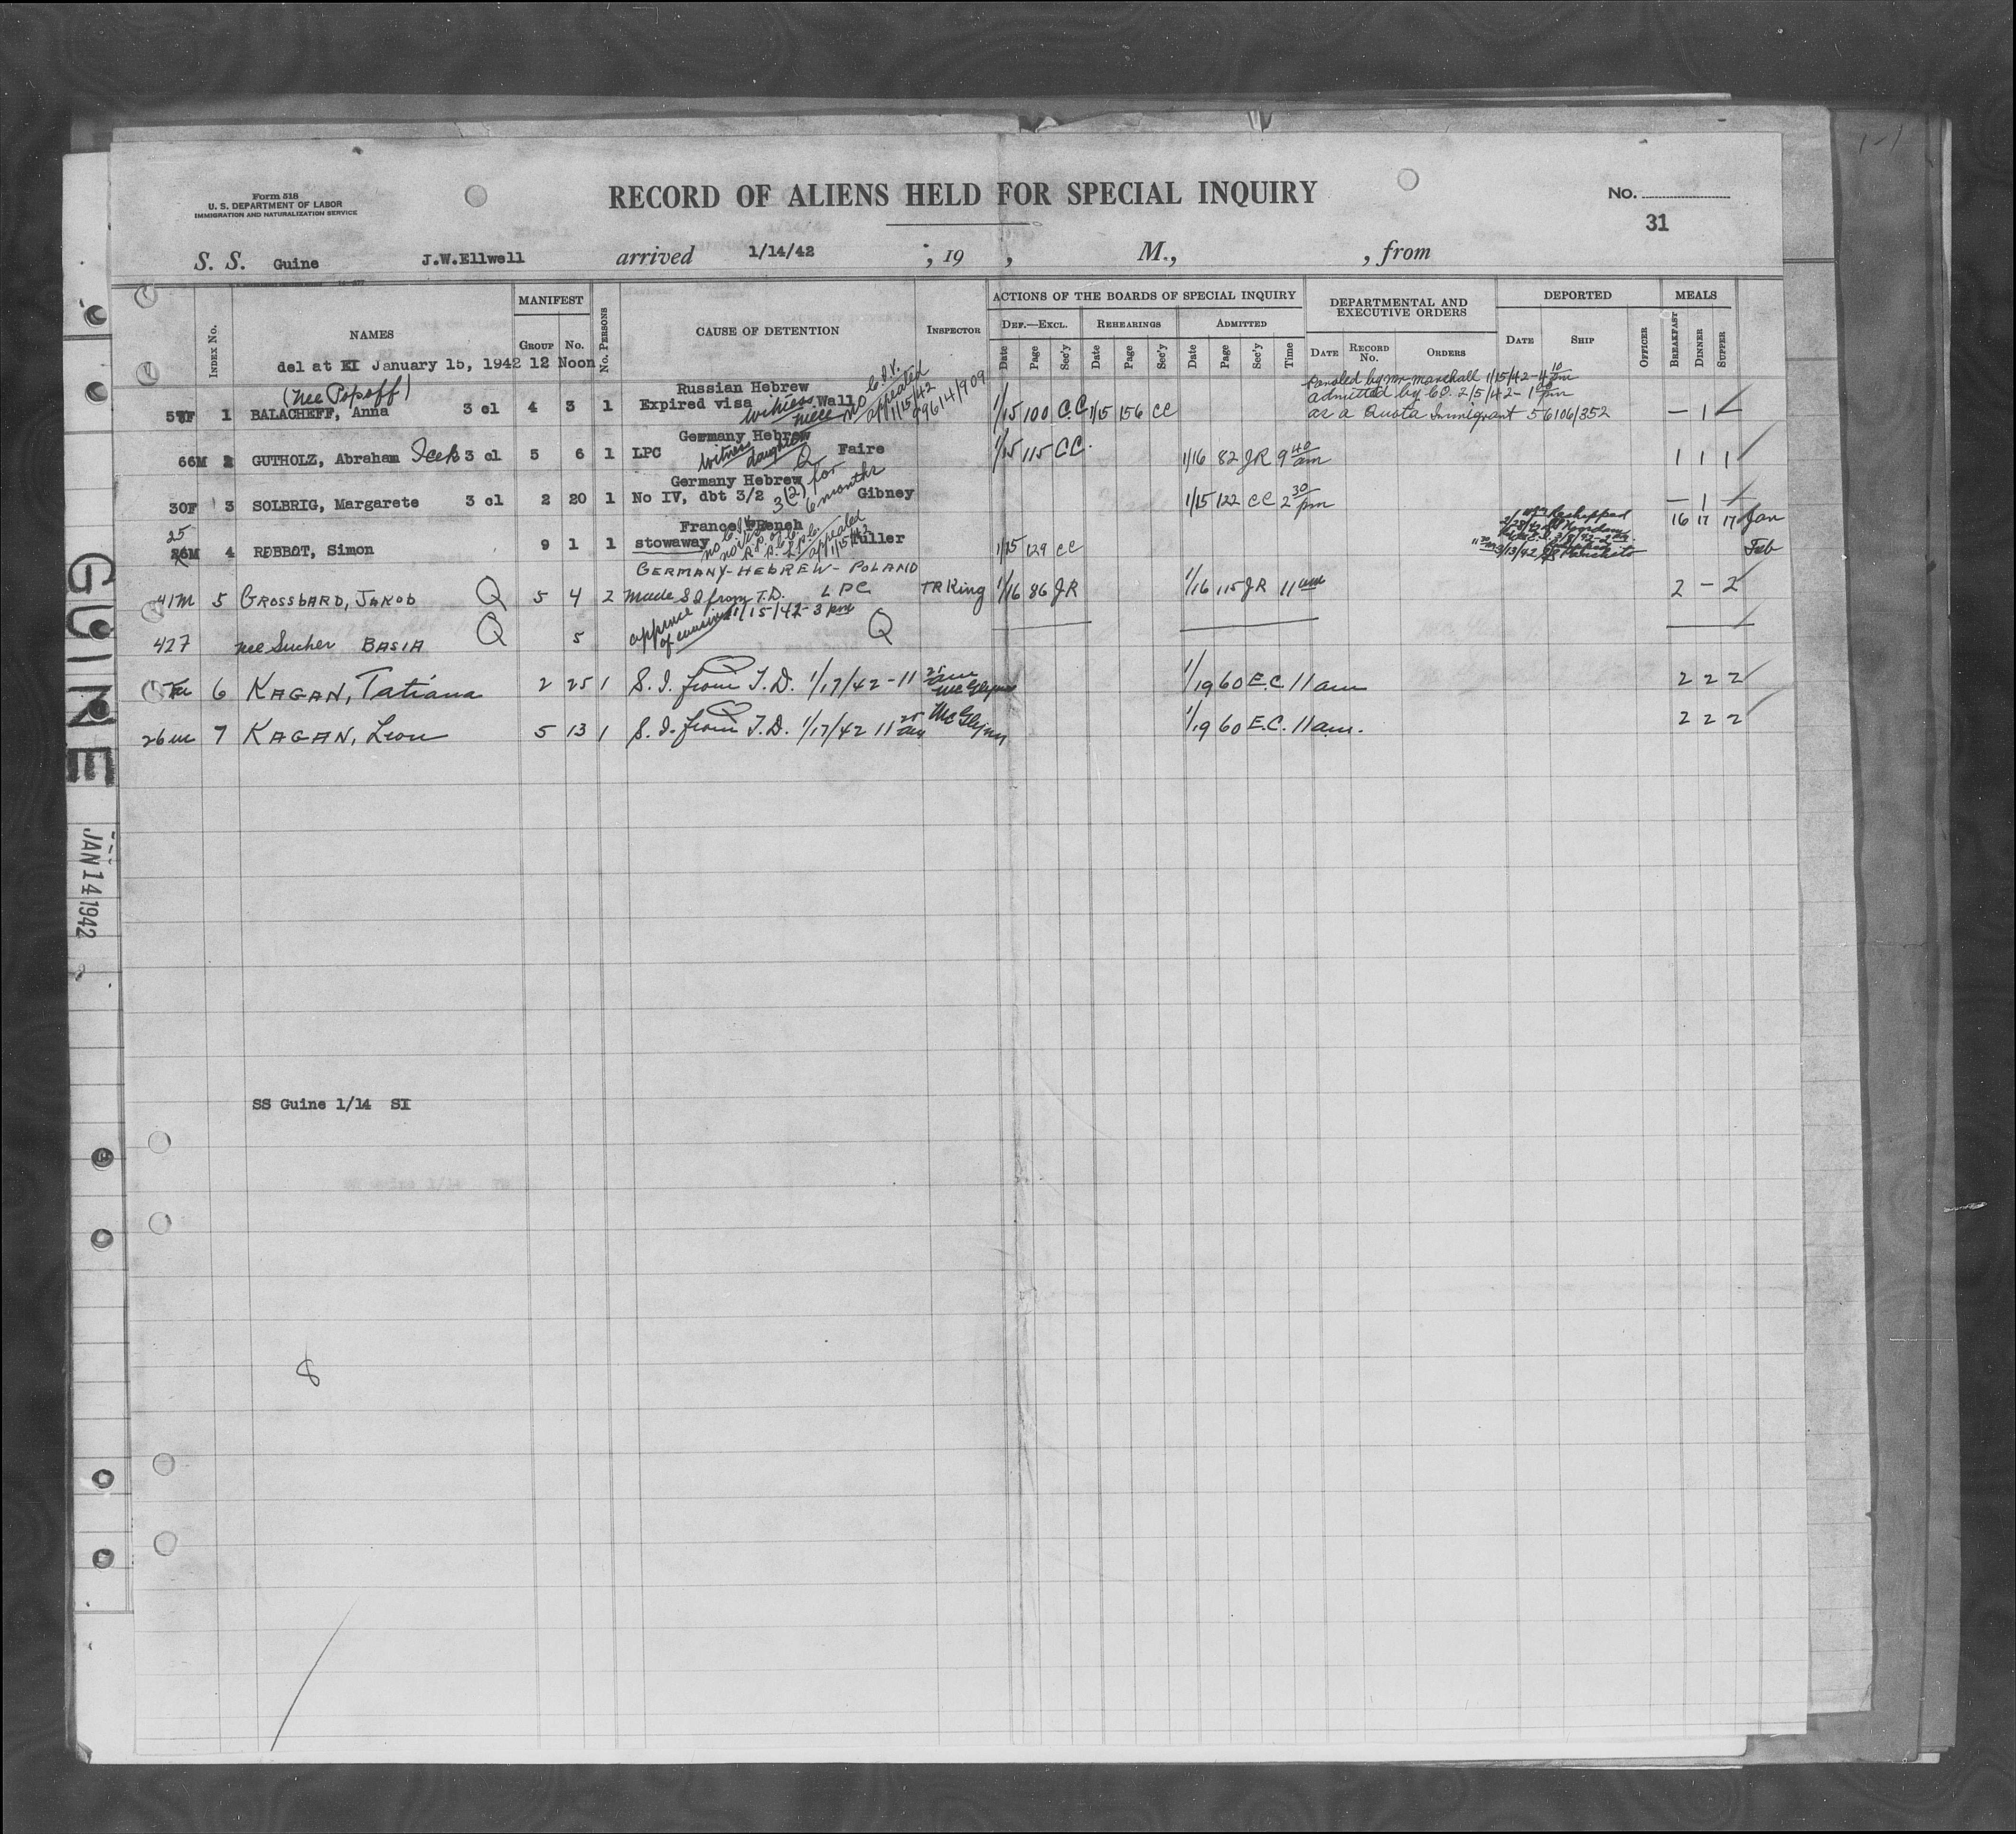 Form 518
U. S. DEPARTMENT OF LABOR
IMMIGRATION AND NATURALIZATION SERVICE
RECORD OF ALIENS HELD FOR SPECIAL INQUIRY
No.
31
S. S. Guine J.W.Ellwell arrived 1/14/42 ; 19 , M., , from
INDEX No. NAMES MANIFEST GROUP No. No. PERSONS CAUSE OF DETENTION INSPECTOR
ACTIONS OF THE BOARDS OF SPECIAL INQUIRY
DEF.—EXCL. REHEARINGS ADMITTED
Date Page Sec'y Date Page Sec'y Date Page Sec'y Time
DEPARTMENTAL AND EXECUTIVE ORDERS
DATE RECORD No. ORDERS
DEPORTED
DATE SHIP OFFICER
MEALS
BREAKFAST DINNER SUPPER
del at EI January 15, 1942 12 Noon
(nee Popoff) Russian Hebrew
57F 1 BALACHEFF, Anna 3 cl 4 3 1 Expired visa Wall
witness niece no C.I.V. appealed 1/15/42 99614/909
1/15 100 C.C. 1/15 156 CC
Paroled by Mr Marshall 1/15/42-4 10 pm
admitted by CO. 2/5/42-1 pm
as a Quota Immigrant 56106/352 — 1
Germany Hebrew
66M 2 GUTHOLZ, Abraham Icek 3 cl 5 6 1 LPC witness daughter Q Faire 1/15 115 CC. 1/16 82 JR 9 40 am 1 1 1
Germany Hebrew
30F 3 SOLBRIG, Margarete 3 cl 2 20 1 No IV, dbt 3/2 3(2) for 6 months Gibney 1/15 122 CC 2 30 pm — 1
25 France French
26M 4 REBBOT, Simon 9 1 1 stowaway appealed 1/15/42 1/15 129 CC
Reshipped
16 17 17 Jan
Feb
GERMANY-HEBREW-POLAND
41M 5 GROSSBARD, JAKOB Q 5 4 2 Made SI from T.D. LPC TR King 1/16 86 JR 1/16 115 JR 11 am 2 - 2
1/15/42-3 pm
427 nee Sucher BASIA Q 5 Q
6 KAGAN, Tatiana 2 25 1 S.I. from T.D. 1/17/42-11 25 am McGlynn 1/19 60 E.C. 11 am 2 2 2
26m 7 KAGAN, Leon 5 13 1 S.I. from T.D. 1/17/42 11 25 am McGlynn 1/19 60 E.C. 11 am. 2 2 2
SS Guine 1/14 SI
8
GUINE
JAN 14 1942